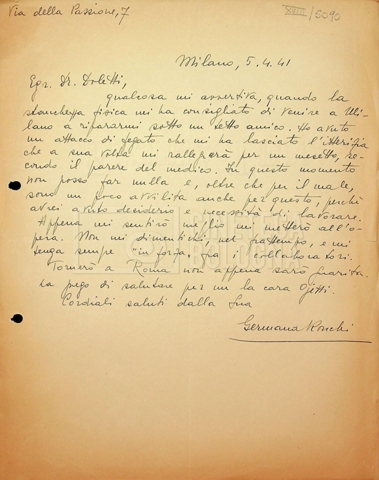 Via della Passione, 7
XVIII/5090
Milano, 5.4.41
Egr. Dr. Doletti,
qualcosa mi avvertiva, quando la
stanchezza fisica mi ha consigliato di venire a Mi-
lano a ripararmi sotto un tetto amico. Ho avuto
un attacco di fegato che mi ha lasciato l'itterizia
che a sua volta mi rallegrerà per un mesetto, se-
condo il parere del medico. In questo momento
non posso far nulla e, oltre che per il male,
sono un poco avvilita anche per questo, perchè
avrei avuto desiderio e necessità di lavorare.
Appena mi sentirò meglio mi metterò all'o-
pera. Non mi dimentichi, nel frattempo, e mi
tenga sempre in forza, fra i collaboratori.
Tornerò a Roma non appena sarò guarita.
La prego di salutare per me la cara
Cordiali saluti dalla Sua
Germana Ronchi